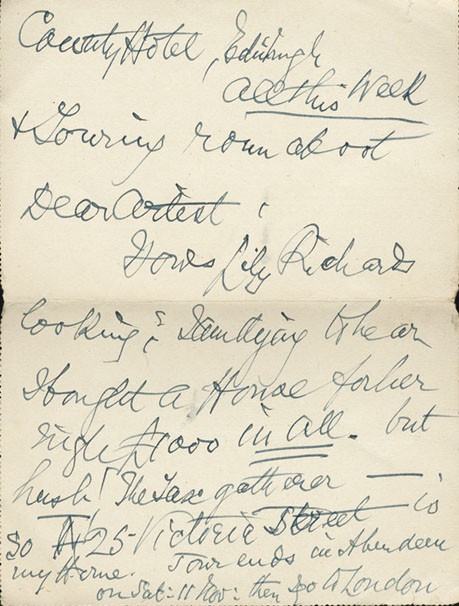 County Hotel, Edinburgh
All this Week
& Touring round about
Dear Artist :
How's Lily Richards
looking? I am dying to hear
I bought a House for her
nigh £1000 in all. but
hush! The Tax gatherer — is
So 25 Victoria Street
my Home. Tour ends in Aberdeen
on Sat: 11 Nov: then go to London